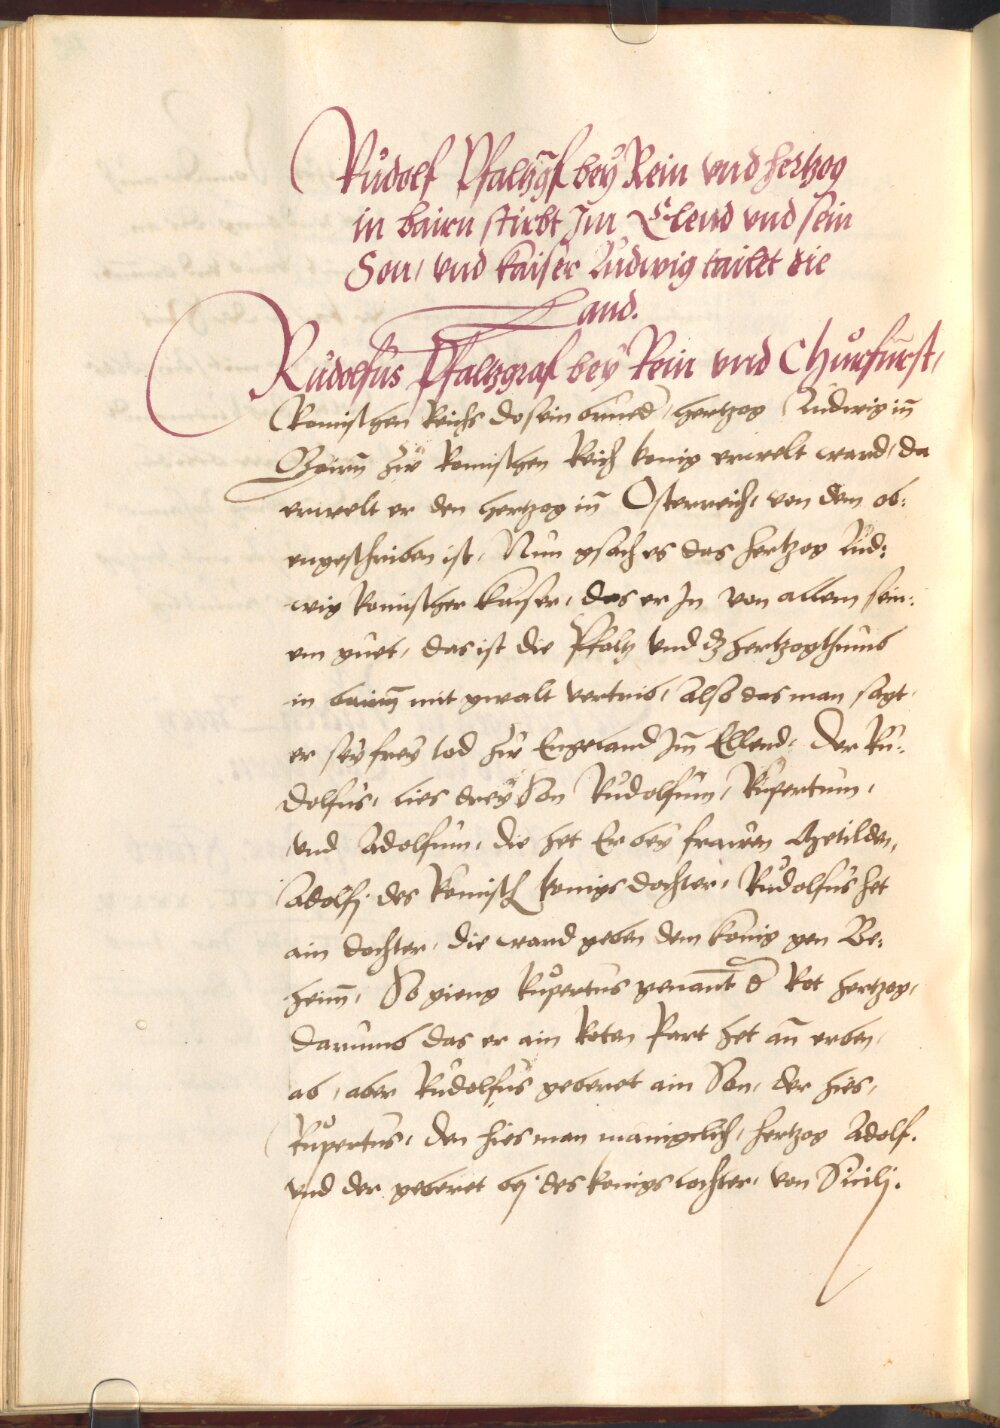 Rudolf Pfaltzgf bey Rein vnd hertzog
in bairn stirbt Im Elend vnd sein
Son, vnd kaiser Ludwig tailet die
Land.
Rudolfus Pfaltzgraf bey Rein vnd Churfurst,
Romischen Reichs do sein brued, hertzog Ludwig in
Bairn zu Romischen Reich konig erwelt ward, da
erwelt er den hertzog in Osterreich, von dem ob:
engeschriben ist, Nun gsach es das hertzog Lud:
wig Romischer kaiser, das er In von allem sein:
em guet, das ist die Pfaltz vnd dz hertzogthumb
in bairn mit gwalt vertrib, also das man sagt
er sey frey tod zu Engeland Im Ellend, Der Ru:
dolfus, lies drey Son Rudolfum, Rupertum,
vnd Adolfum, die het Er bey frawen Metilden,
Adolfj des Romisch konigs dochter, Rudolfus het
ain dochter, die ward geben dem konig gen Be:
heim, So gieng Rupertus genant d Rot hertzog,
darumb das er ain Roten Part het an erben
ab, aber Rudolfus geberet ain Son, der hies,
Rupertus, den hies man manigclich, hertzog Adolf.
vnd der geberet bej des konigs tochter, von Sicilj.